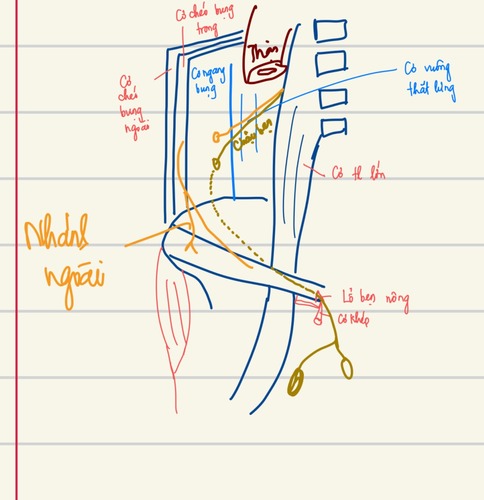 Cơ chéo bụng
trong
Thận
Cơ
chéo
bụng
ngoài
Cơ ngang
bụng
Cơ vuông
thắt lưng
Chậu bẹn
Cơ tl lớn
Nhánh
ngoài
Lỗ bẹn nông
Cơ khép